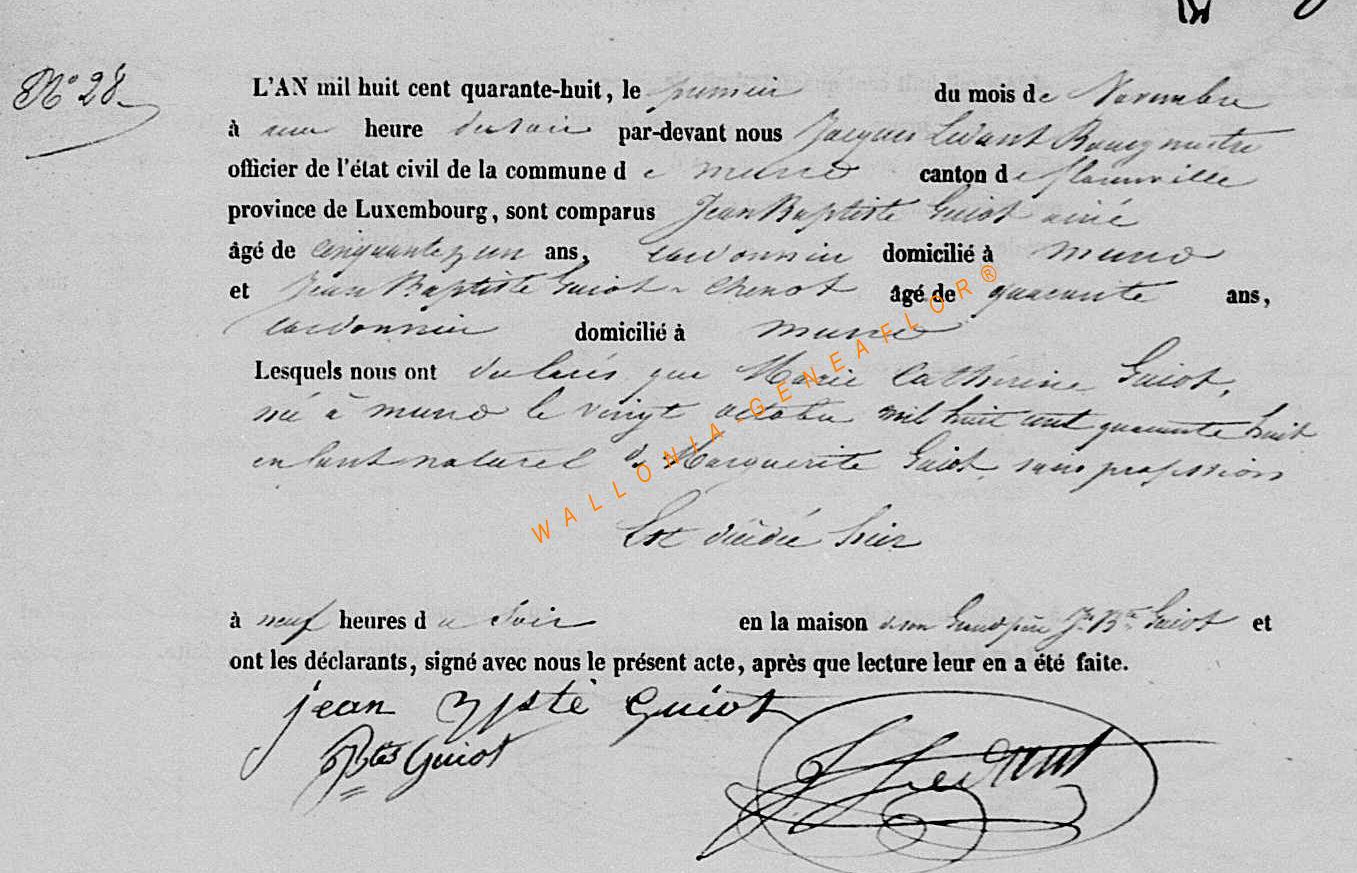 N° 28
L'AN mil huit cent quarante-huit, le premier du mois de Novembre
à une heure du soir par-devant nous Jacques Livant Bourgmestre
officier de l'état civil de la commune de muno canton de florenville
province de Luxembourg, sont comparus Jean Baptiste Guiot ainé
âgé de cinquante un ans, cordonnier domicilié à muno
et Jean Baptiste Guiot - Chenot âgé de quarante ans,
cordonnier domicilié à muno
Lesquels nous ont déclarés que Marie Catherine Guiot,
né à muno le vingt octobre mil huit cent quarante huit
enfant naturel de Marguerite Guiot, sans profession
Est décédé hier
à neuf heures du Soir en la maison de son Grand père Jn Bte Guiot et
ont les déclarants, signé avec nous le présent acte, après que lecture leur en a été faite.
jean Guiot
Guiot
WALLONIA-GENEAFLOR®